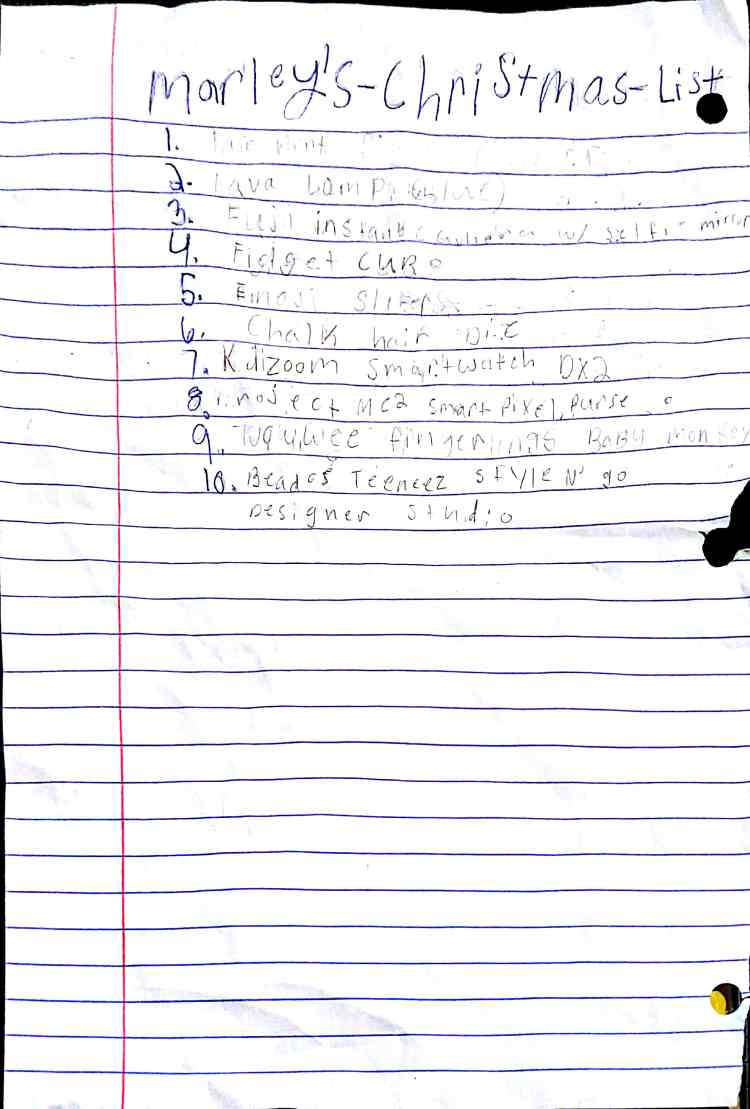 Marley's-Christmas-List
1.
2. Lava Lamp (blue)
3. Fuji instant camera w/ selfie mirror
4. Fidget CUBE
5. Emoji
6. Chalk hair
7. Kidizoom smartwatch DX2
8. Project MC2 smart pixel purse
9. fingerlings BaBy monkey
10. Beados Teeneez STYLE N' go
Designer studio